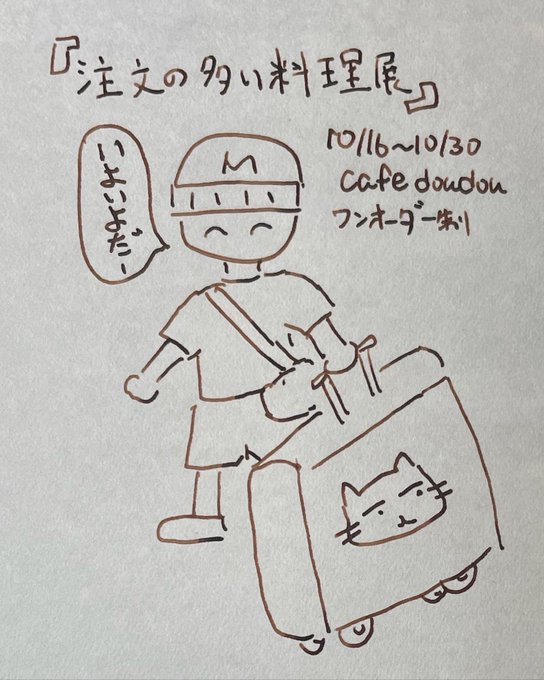 『注文の多い料理展』
10/16~10/30
cafe doudou
ワンオーダー制
いよいよだー
M